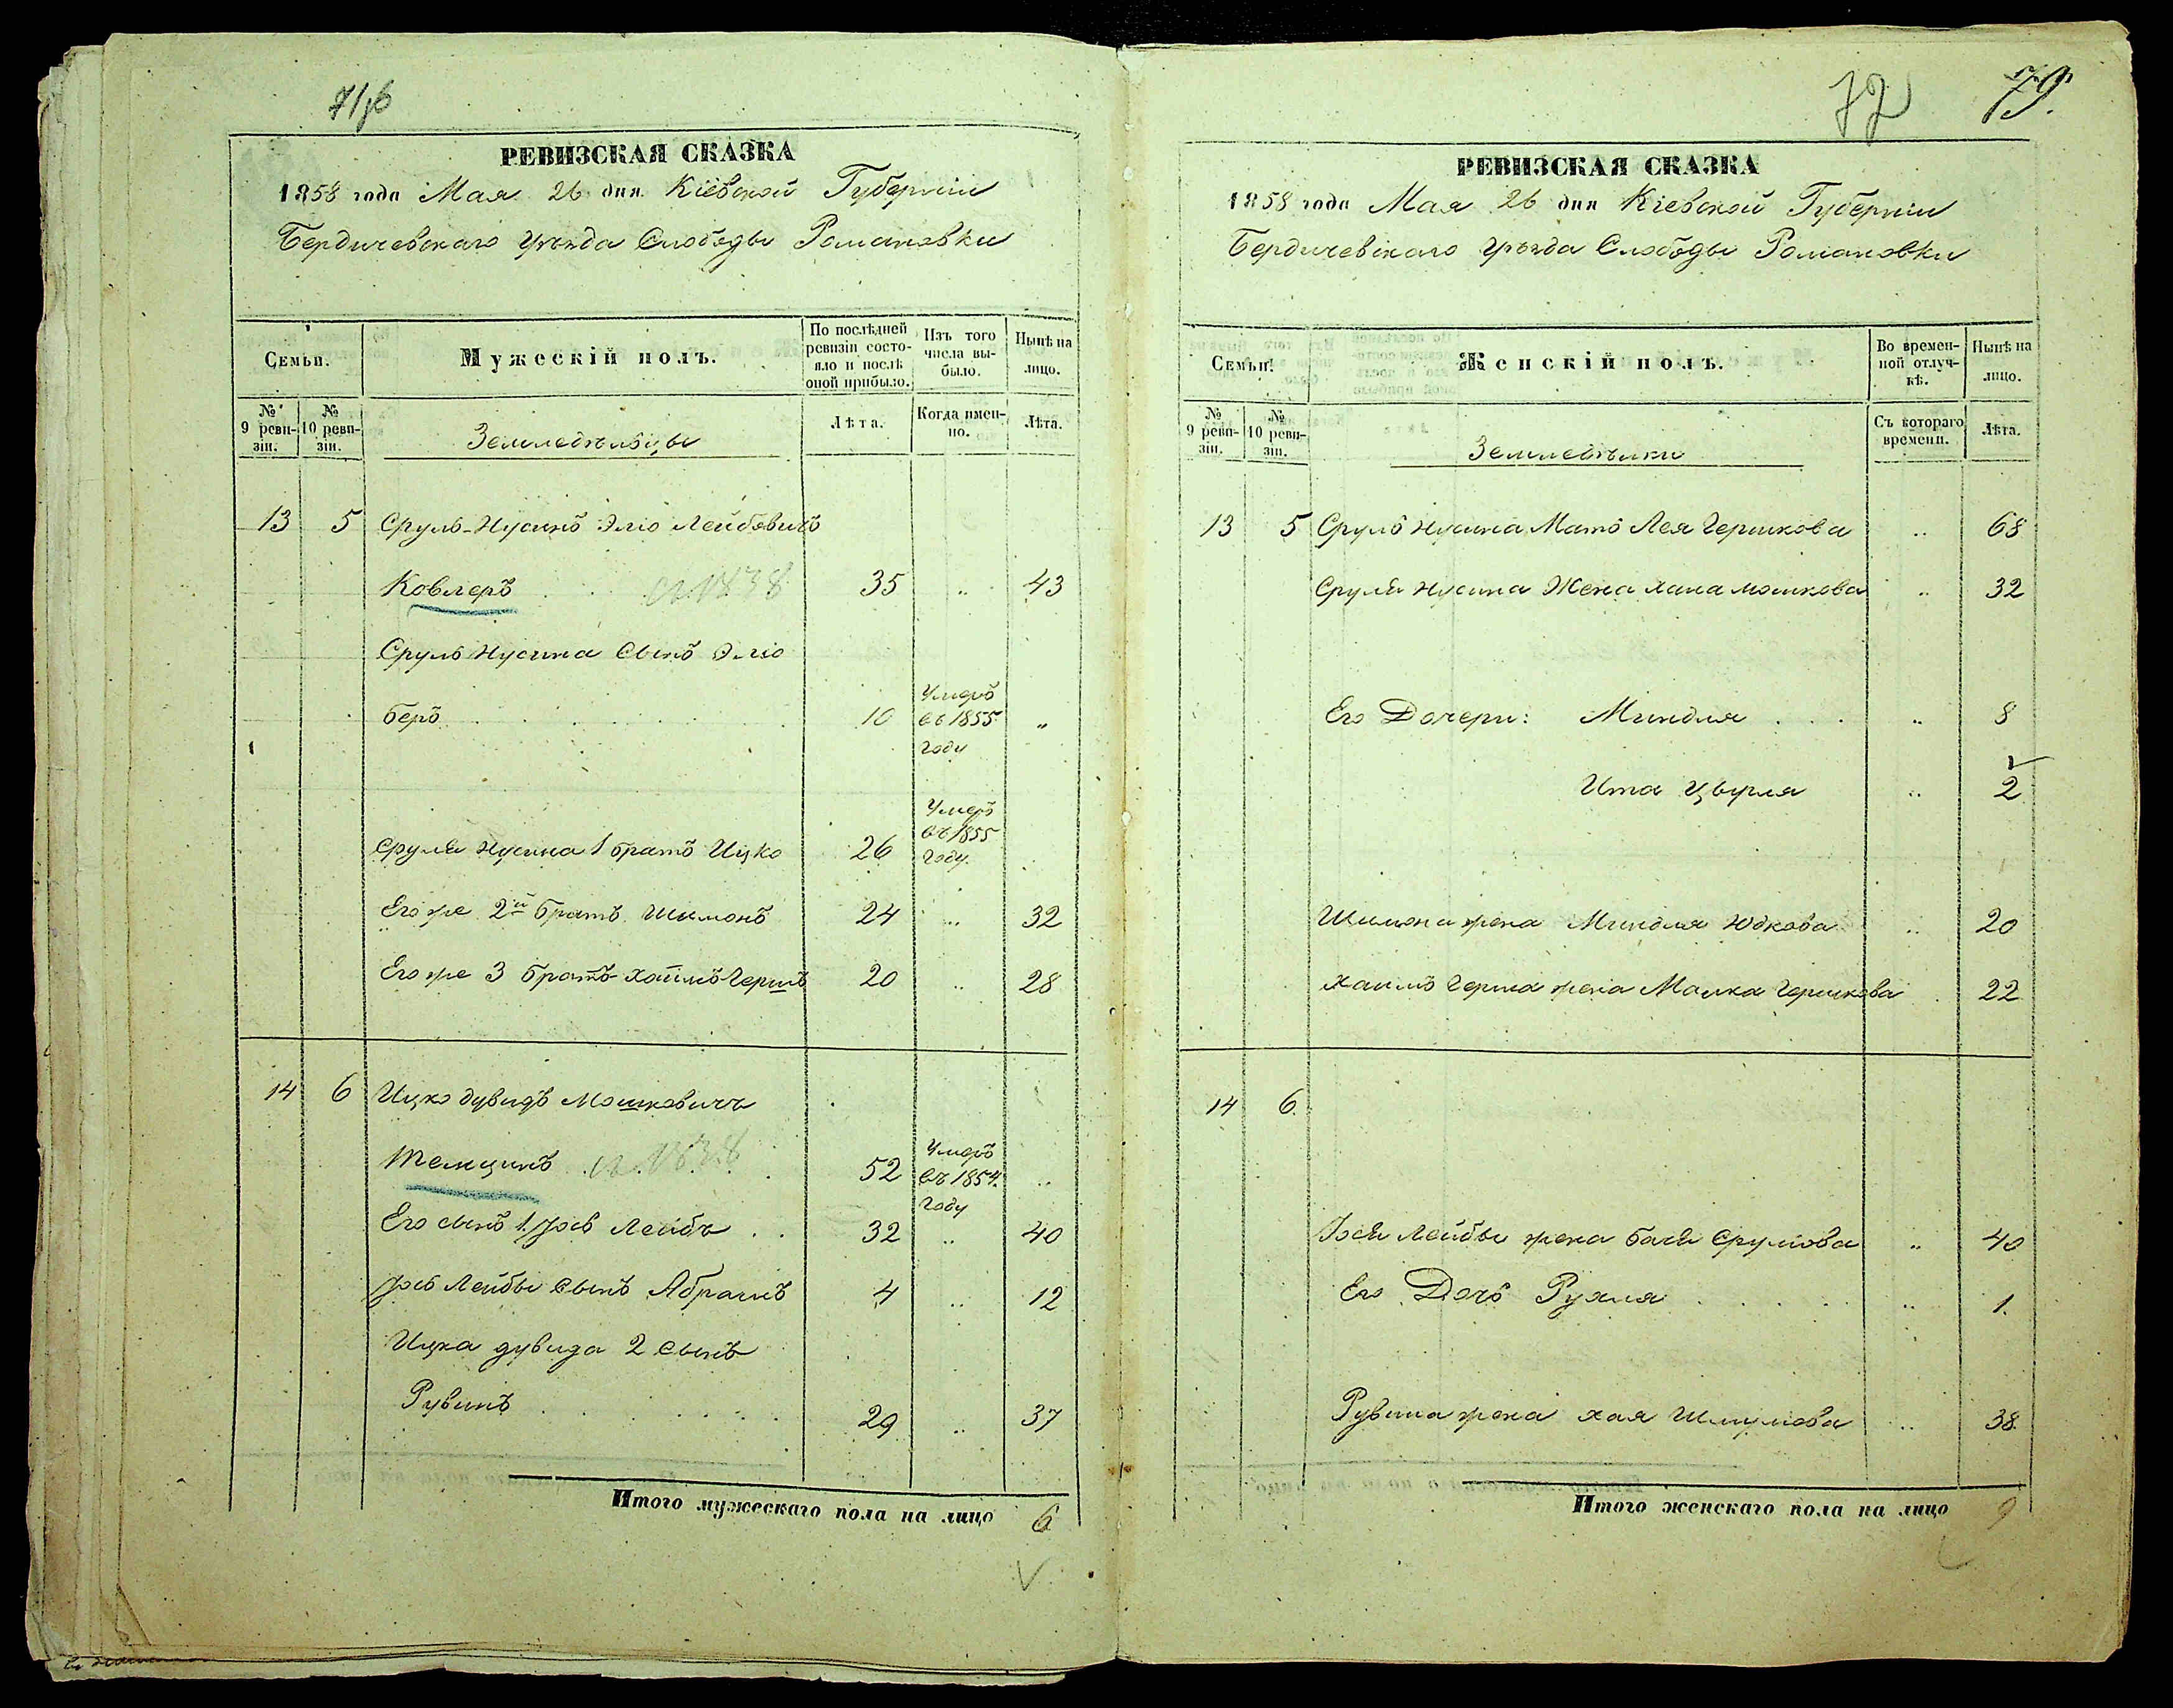 71/об
РЕВИЗСКАЯ СКАЗКА
1858 года Мая 26 дня Кіевской Губерніи
Бердичевскаго Уѣзда Слободы Романовки
Семьи.
Мужескій полъ.
По послѣдней ревизіи состояло и послѣ оной прибыло.
Изъ того числа выбыло.
Нынѣ на лицо.
№ 9 ревизіи.
№ 10 ревизіи.
Земледѣльцы
Лѣта.
Когда именно.
Лѣта.
13 5 Сруль-Нусинъ Эліо Лейбовичъ
Ковлеръ 35 „ 43
Сруль Нусина Сынъ Эліо
Беръ 10 Умеръ въ 1855 году „
Сруля Нусина 1 братъ Ицко 26 Умеръ въ 1855 году
Его же 2й братъ Шимонъ 24 „ 32
Его же 3 братъ Хаимъ-Гершъ 20 „ 28
14 6 Ицко дувидъ Мошковичъ
52 Умеръ въ 1854 году „
Его сынъ 1. Іось Лейбъ 32 „ 40
Іось Лейбы Сынъ Абрамъ 4 „ 12
Ицка дувида 2 сынъ
Рувинъ 29 „ 37
Итого мужескаго пола на лицо 6
72 79.
РЕВИЗСКАЯ СКАЗКА
1858 года Мая 26 дня Кіевской Губерніи
Бердичевскаго Уѣзда Слободы Романовки
Семьи.
Женскій полъ.
Во временной отлучкѣ.
Нынѣ на лицо.
№ 9 ревизіи.
№ 10 ревизіи.
Землевѣлки
Съ котораго времени.
Лѣта.
13 5 Сруль Нусина Мать Лея Гершкова „ 68
Сруля Нусина Жена хана мошкова „ 32
Его Дочери: Миндля „ 8
Ита Цвурля „ 2
Шимона жена Миндля Юдкова „ 20
Хаимъ Герша жена Малка Гершкова 22
14 6.
Іося Лейбы жена Бася Срулова „ 40
Его Дочь Рухля „ 1.
Рувина жена хая Шмулова „ 38.
Итого женскаго пола на лицо 9